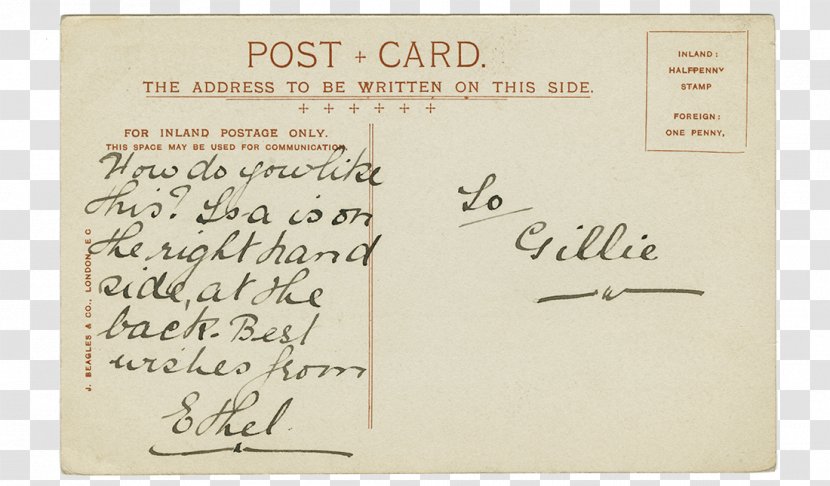 POST + CARD.
THE ADDRESS TO BE WRITTEN ON THIS SIDE.
INLAND:
HALFPENNY
STAMP
FOREIGN:
ONE PENNY.
FOR INLAND POSTAGE ONLY.
THIS SPACE MAY BE USED FOR COMMUNICATION.
How do you like
this? Isa is on
the right hand
side, at the
back. Best
wishes from
Ethel
To
Gillie
J. BEAGLES & CO., LONDON, E.C